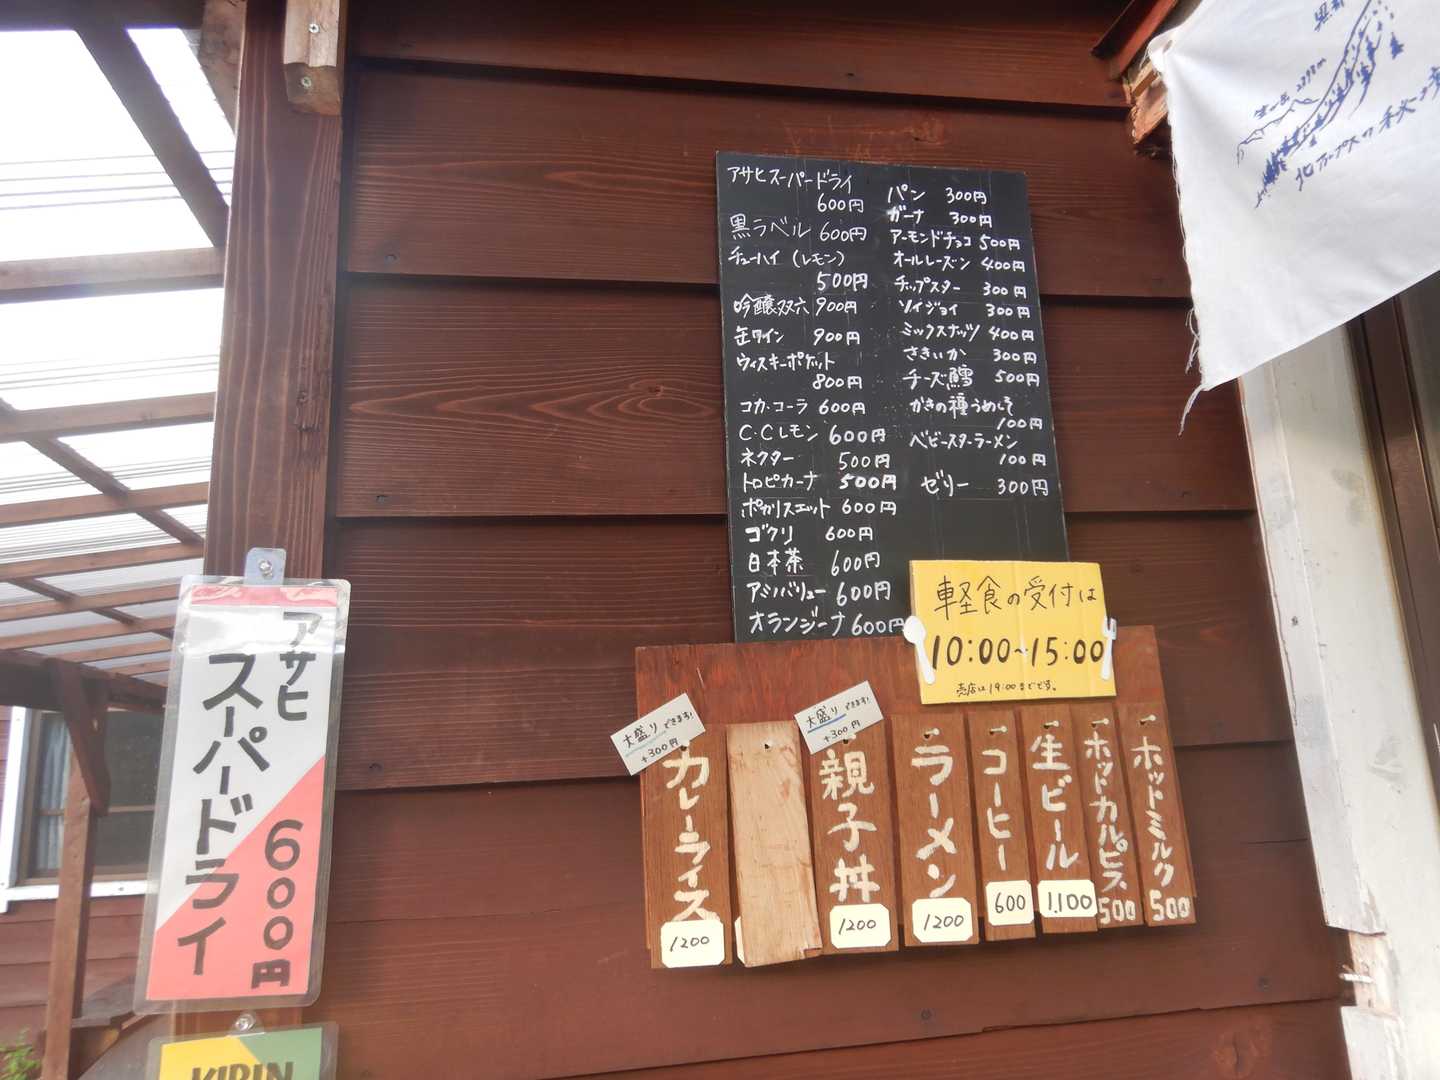 アサヒスーパードライ
600円
黒ラベル 600円
チューハイ (レモン)
500円
吟醸双六 900円
缶ワイン 900円
ウィスキーポケット
800円
コカ・コーラ 600円
C.Cレモン 600円
ネクター 500円
トロピカーナ 500円
ポカリスエット 600円
ゴクリ 600円
日本茶 600円
アミノバリュー 600円
オランジーナ 600円
パン 300円
ガーナ 300円
アーモンドチョコ 500円
オールレーズン 400円
チップスター 300円
ソイジョイ 300円
ミックスナッツ 400円
さきいか 300円
チーズ鱈 500円
かきの種うめしそ
100円
ベビースターラーメン
100円
ゼリー 300円
軽食の受付は
10:00~15:00
売店は19:00までです。
大盛りできます!
+300円
カレーライス
1200
大盛りできます!
+300円
親子丼
1200
ラーメン
1200
コーヒー
600
生ビール
1,100
ホットカルピス
500
ホットミルク
500
アサヒ
スーパードライ
600円
KIRIN
北アルプスの秋